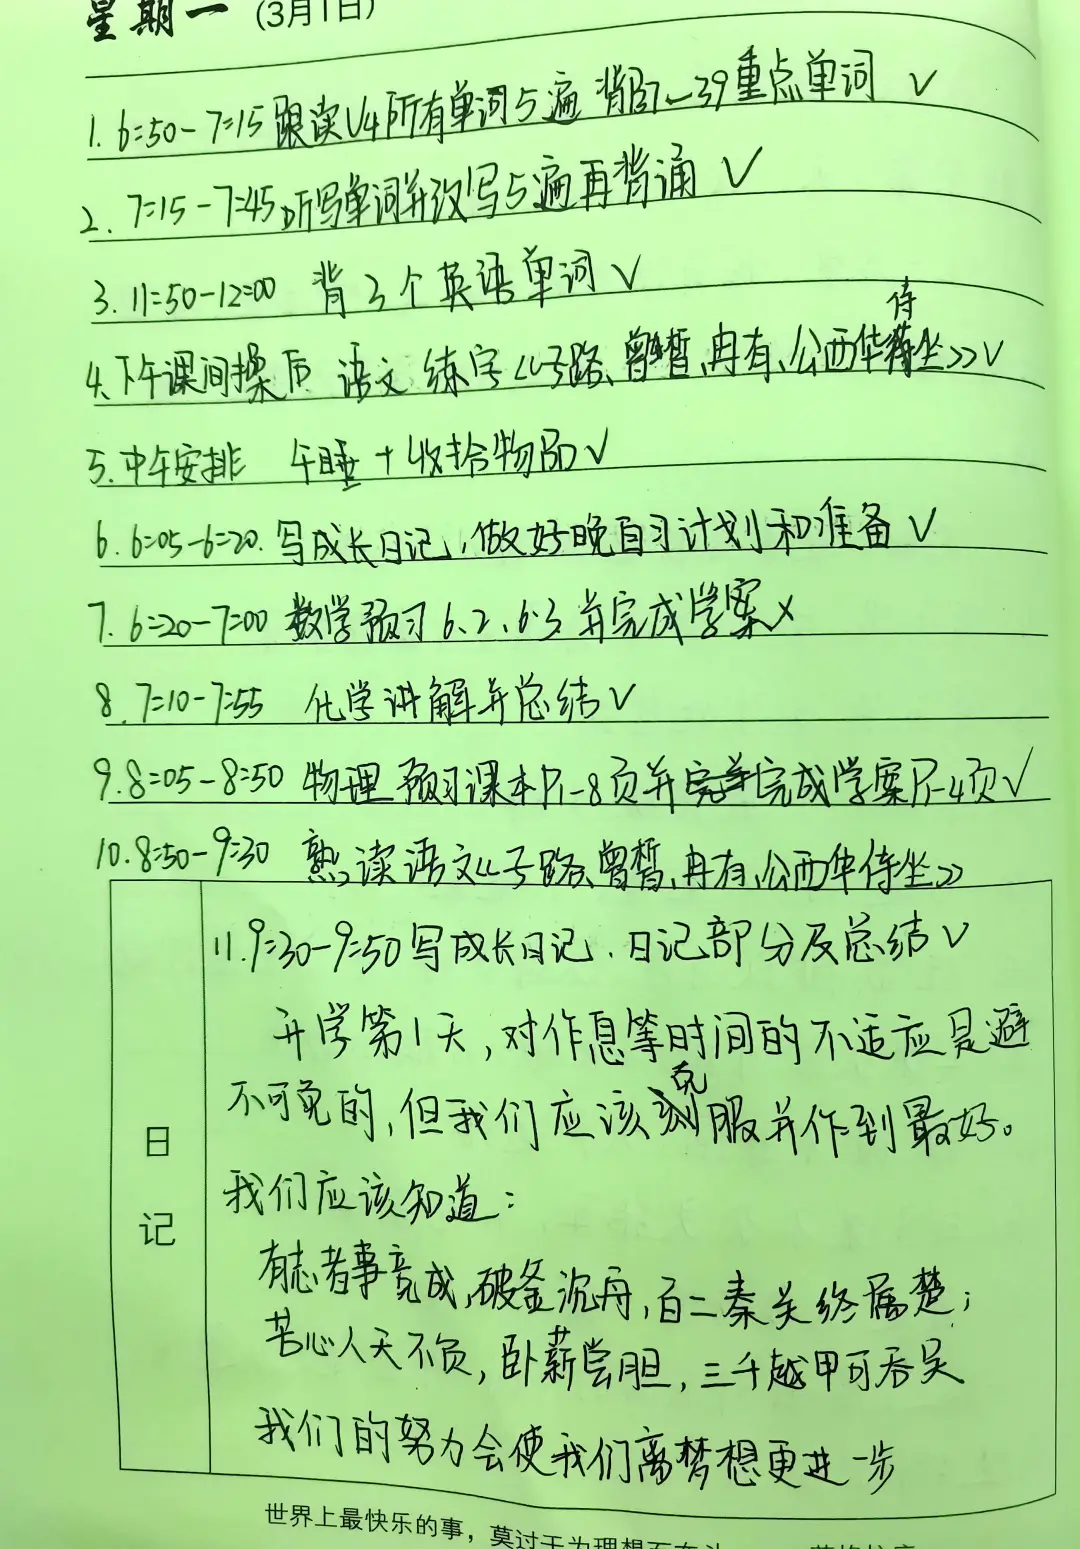 星期一 (3月1日)
1. 6:50-7:15 跟读U4所有单词5遍 背37~39重点单词 √
2. 7:15-7:45 听写单词并改写5遍再背诵 √
3. 11:50-12:00 背3个英语单词 √
侍
4.下午课间操后 语文 练字《子路、曾皙、冉有、公西华坐》√
5.中午安排 午睡+收拾物品 √
6. 6:05-6:20. 写成长日记,做好晚自习计划和准备 √
7. 6:20-7:00 数学预习6.2、6.3 并完成学案×
8. 7:10-7:55 化学讲解并总结 √
9. 8:05-8:50 物理 预习课本P1-8页并完成学案P1-4页√
10. 8:50-9:30 熟读语文《子路、曾皙、冉有、公西华侍坐》
11. 9:30-9:50 写成长日记.日记部分及总结 √
开学第1天,对作息等时间的不适应是避
克
不可免的,但我们应该服并作到最好。
我们应该知道:
有志者事竟成,破釜沉舟,百二秦关终属楚;
苦心人天不负,卧薪尝胆,三千越甲可吞吴
我们的努力会使我们离梦想更进一步
日
记
世界上最快乐的事,莫过于为理想而奋斗